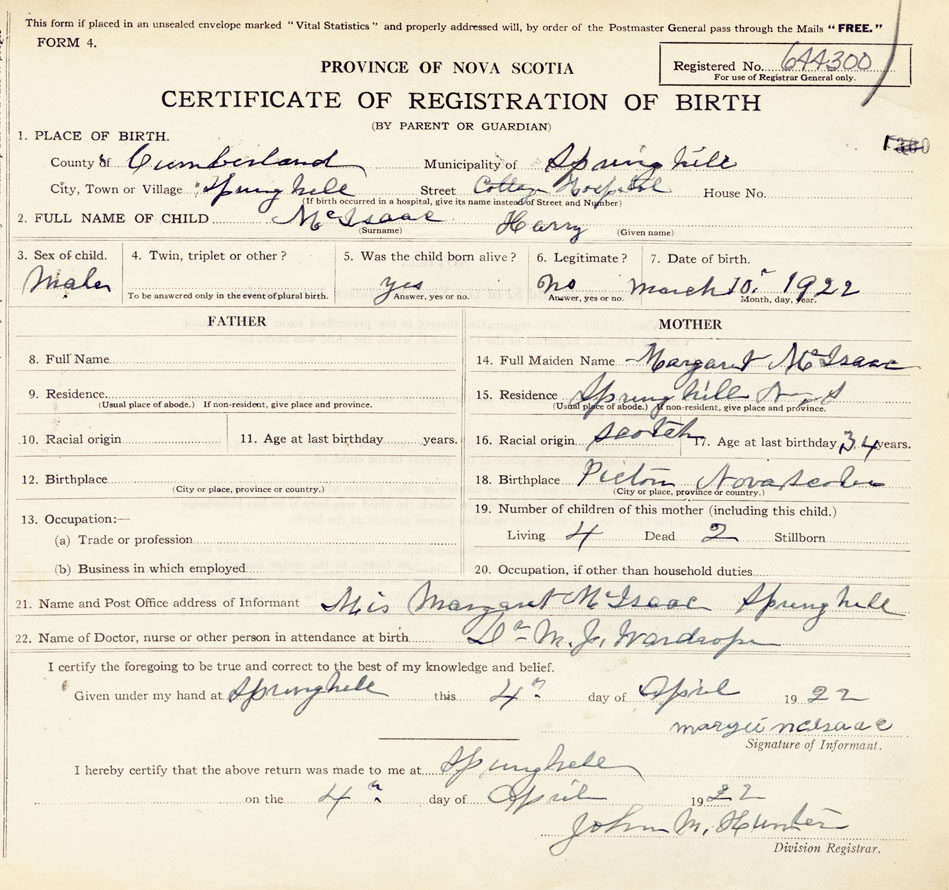 This form if placed in an unsealed envelope marked "Vital Statistics" and properly addressed will, by order of the Postmaster General pass through the Mails "FREE."
FORM 4.
Registered No. 644300
For use of Registrar General only.
PROVINCE OF NOVA SCOTIA
CERTIFICATE OF REGISTRATION OF BIRTH
(BY PARENT OR GUARDIAN)
1. PLACE OF BIRTH.
County of Cumberland Municipality of Springhill
City, Town or Village Springhill Street Cottage Hospital House No.
(If birth occurred in a hospital, give its name instead of Street and Number)
2. FULL NAME OF CHILD McIsaac Harry
(Surname) (Given name)
3. Sex of child. 4. Twin, triplet or other? 5. Was the child born alive? 6. Legitimate? 7. Date of birth.
Male yes No March 10. 1922
To be answered only in the event of plural birth. Answer, yes or no. Answer, yes or no. Month, day, year.
FATHER MOTHER
8. Full Name 14. Full Maiden Name Margaret McIsaac
9. Residence 15. Residence Springhill N S
(Usual place of abode.) If non-resident, give place and province. (Usual place of abode.) If non-resident, give place and province.
10. Racial origin 11. Age at last birthday years. 16. Racial origin Scotch 17. Age at last birthday 34 years.
12. Birthplace 18. Birthplace Pictou Nova Scotia
(City or place, province or country.) (City or place, province or country.)
13. Occupation:— 19. Number of children of this mother (including this child.)
(a) Trade or profession Living 4 Dead 2 Stillborn
(b) Business in which employed 20. Occupation, if other than household duties
21. Name and Post Office address of Informant Mis Margaret McIsaac Springhill
22. Name of Doctor, nurse or other person in attendance at birth Dr M. J. Wardrope
I certify the foregoing to be true and correct to the best of my knowledge and belief.
Given under my hand at Springhill this 4th day of April 1922
margie mcisaac
Signature of Informant.
I hereby certify that the above return was made to me at Springhill
on the 4th day of April 1922
John M. Hunter
Division Registrar.